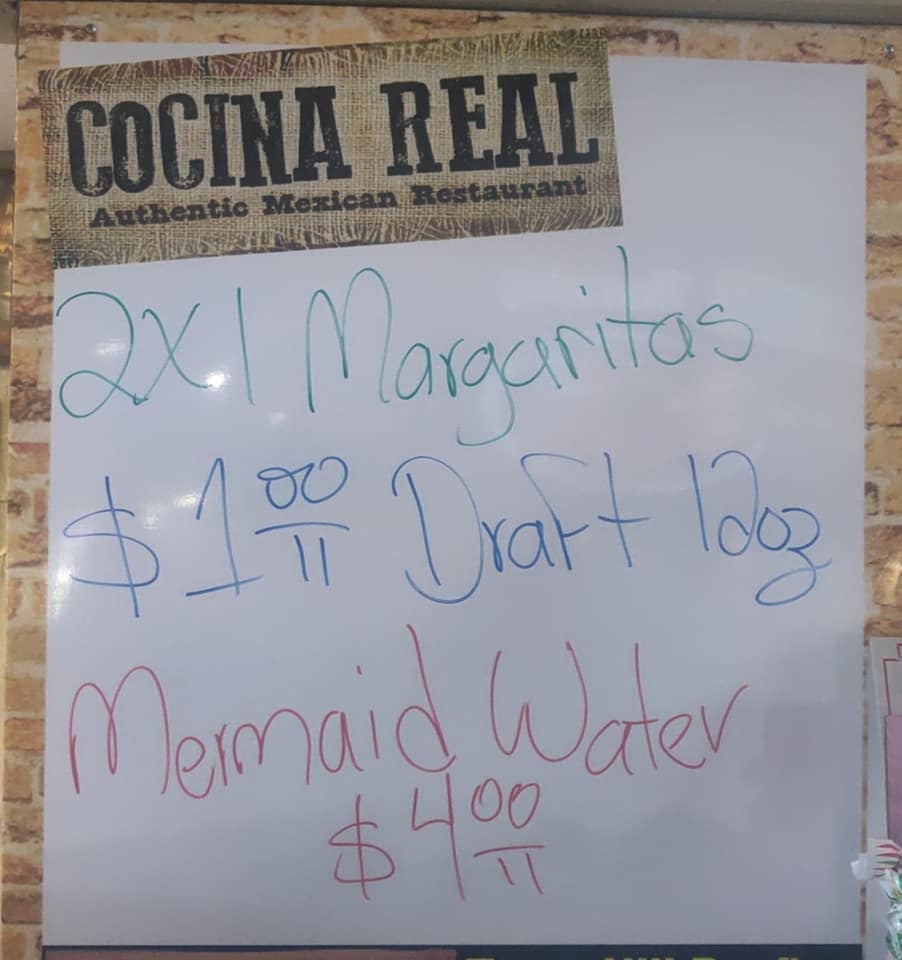 COCINA REAL
Authentic Mexican Restaurant
2X1 Margaritas
$1.00 Draft 12oz
Mermaid Water
$4.00